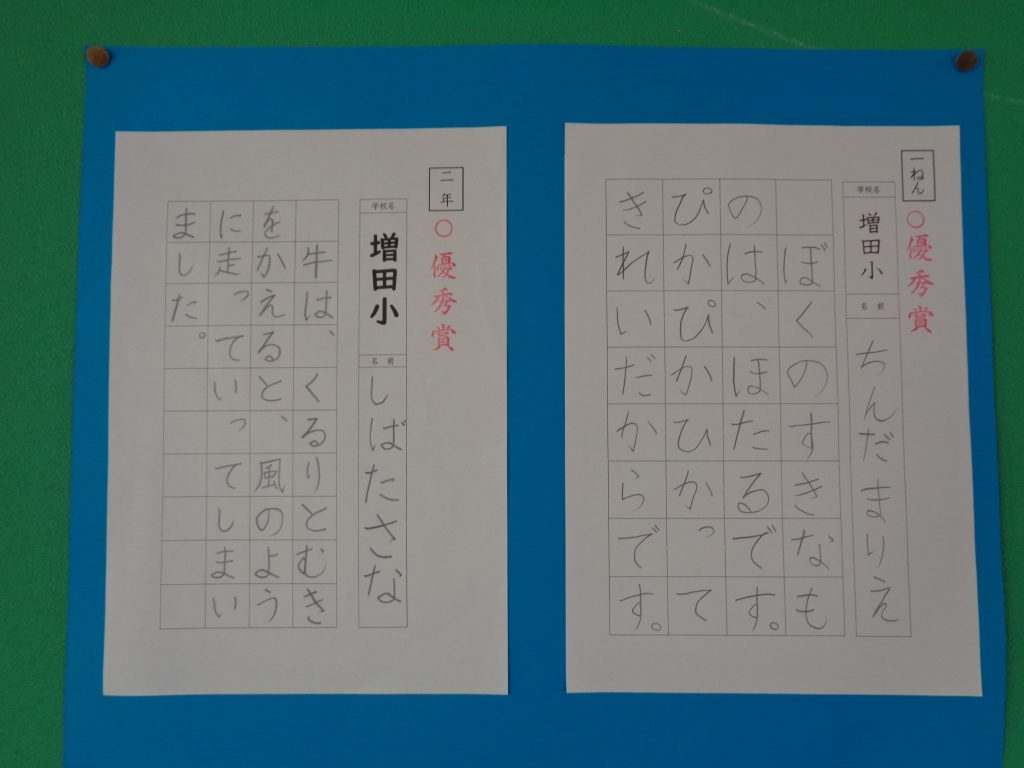 一ねん
○優秀賞
学校名
増田小
名前
ちんだまりえ
ぼくのすきなも
のは、ほたるです。
ぴかぴかひかって
きれいだからです。
二年
○優秀賞
学校名
増田小
名前
しばたさな
牛は、くるりとむき
をかえると、風のよう
に走っていってしまい
ました。